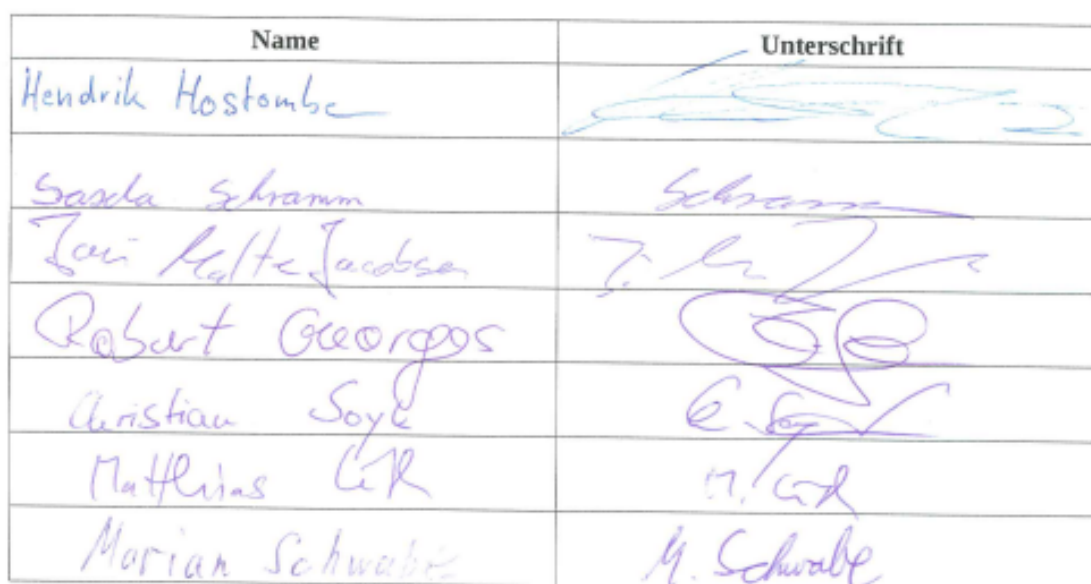 Name Unterschrift
Hendrik Hostombe
Sascha Schramm Schramm
Malte Jacobsen
Robert Georgos
Christian Soyk C. Soyk
Matthias M.
Marian Schwabe M. Schwabe